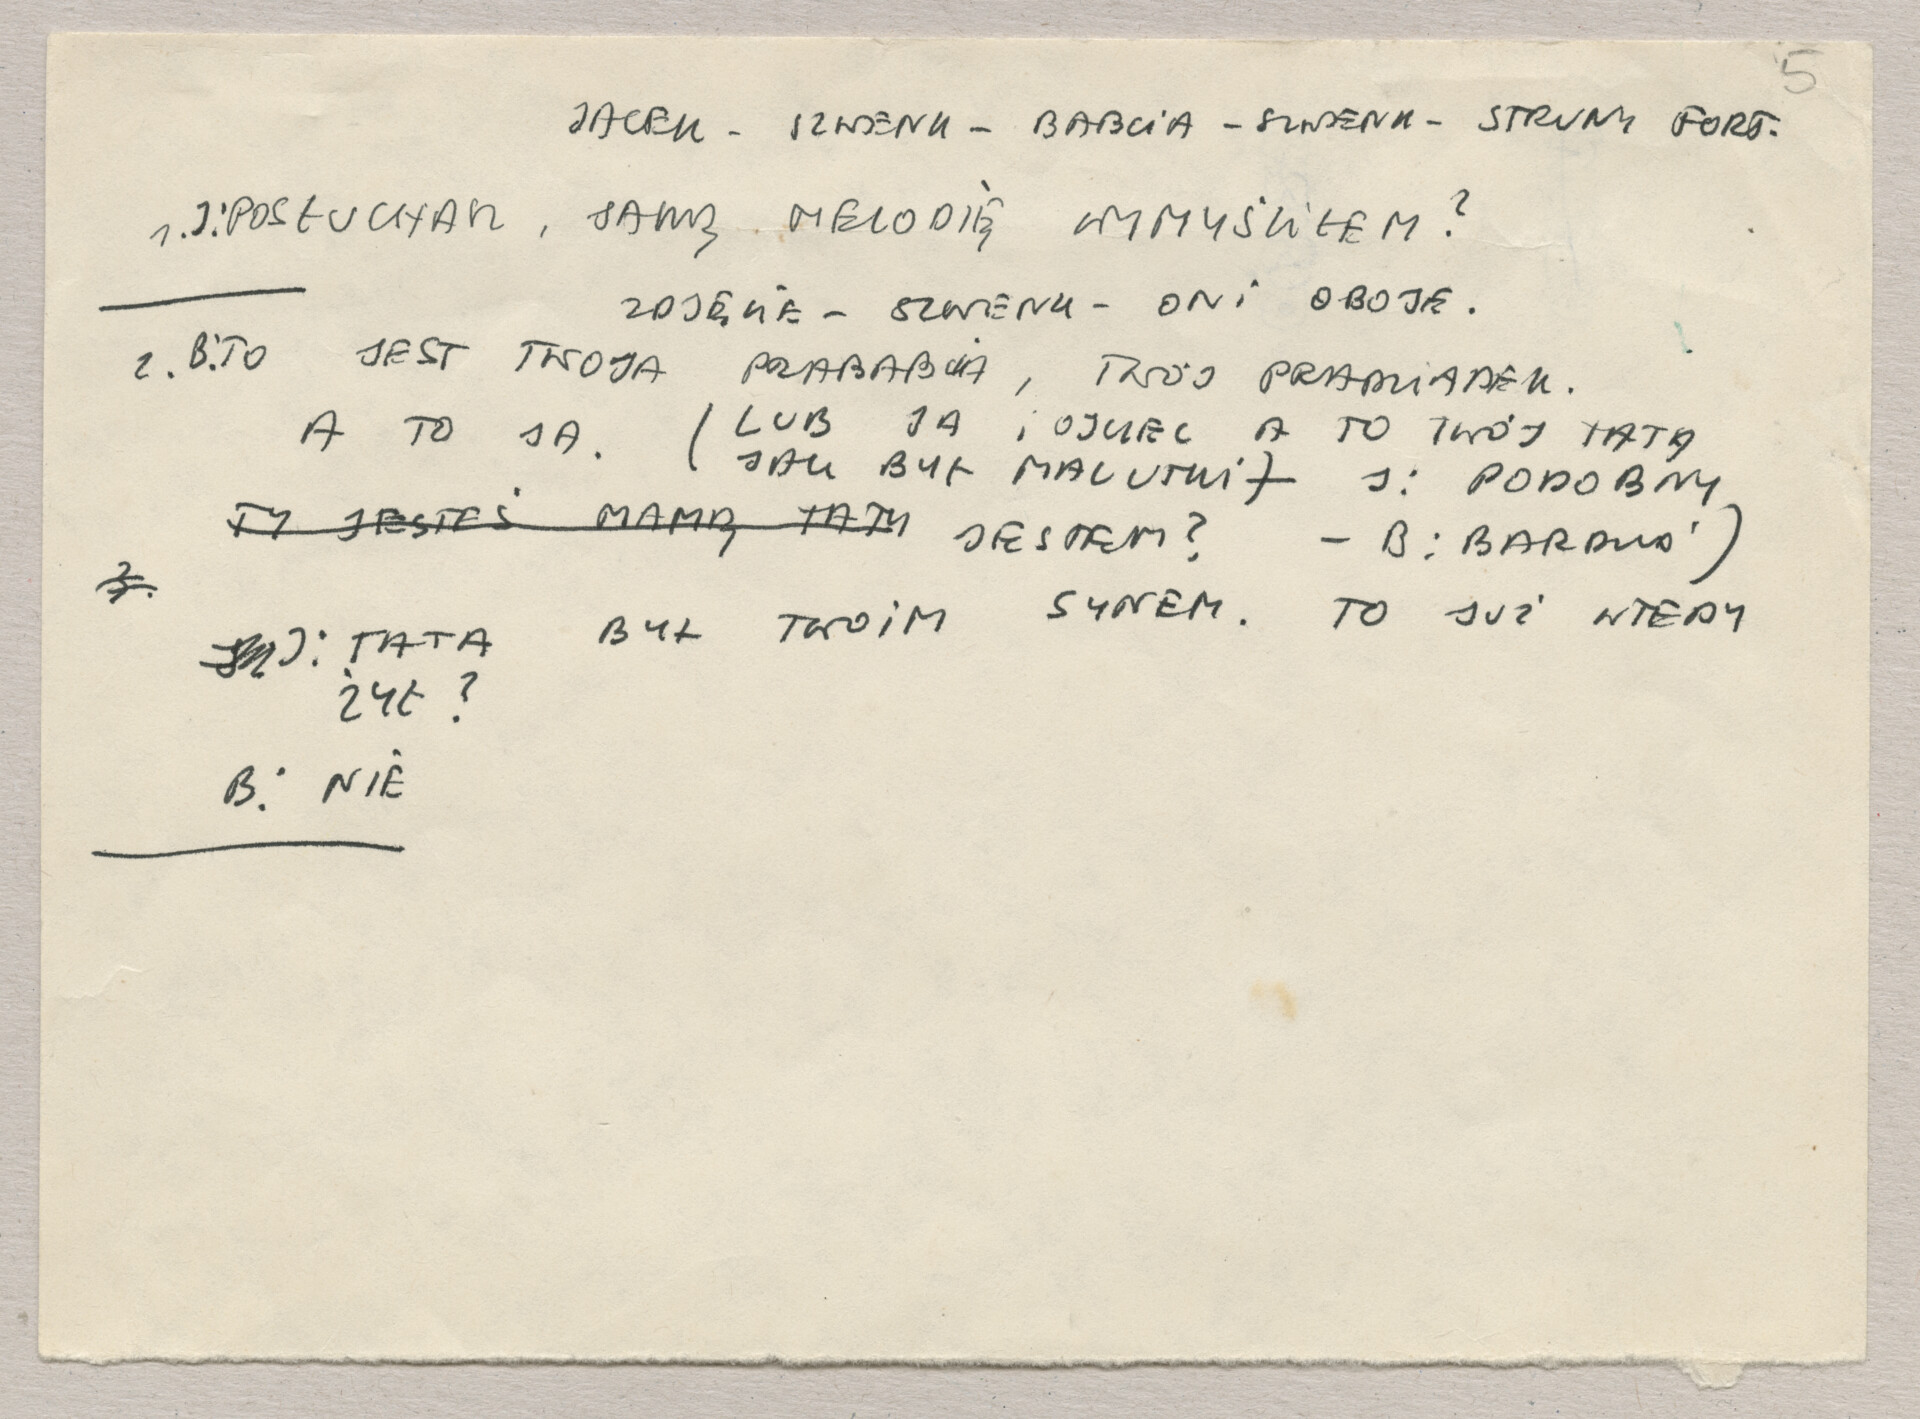 5
JACEK - SZWENK - BABCIA - SZWENK - STRUNY FORT.
1. J: POSŁUCHAJ, JAKĄ MELODIĘ WYMYŚLIŁEM?
ZDJĘCIE - SZWENK - ONI OBOJE.
2. B: TO JEST TWOJA PRABABCIA, TWÓJ PRADZIADEK.
A TO JA. (LUB JA i OJCIEC A TO TWÓJ TATA
JAK BYŁ MALUTKI) J: PODOBNY
TY JESTEŚ MAMĄ TATY JESTEM? - B: BARDZO)
3.
J: TATA BYŁ TWOIM SYNEM. TO JUŻ WTEDY
ŻYŁ?
B: NIE